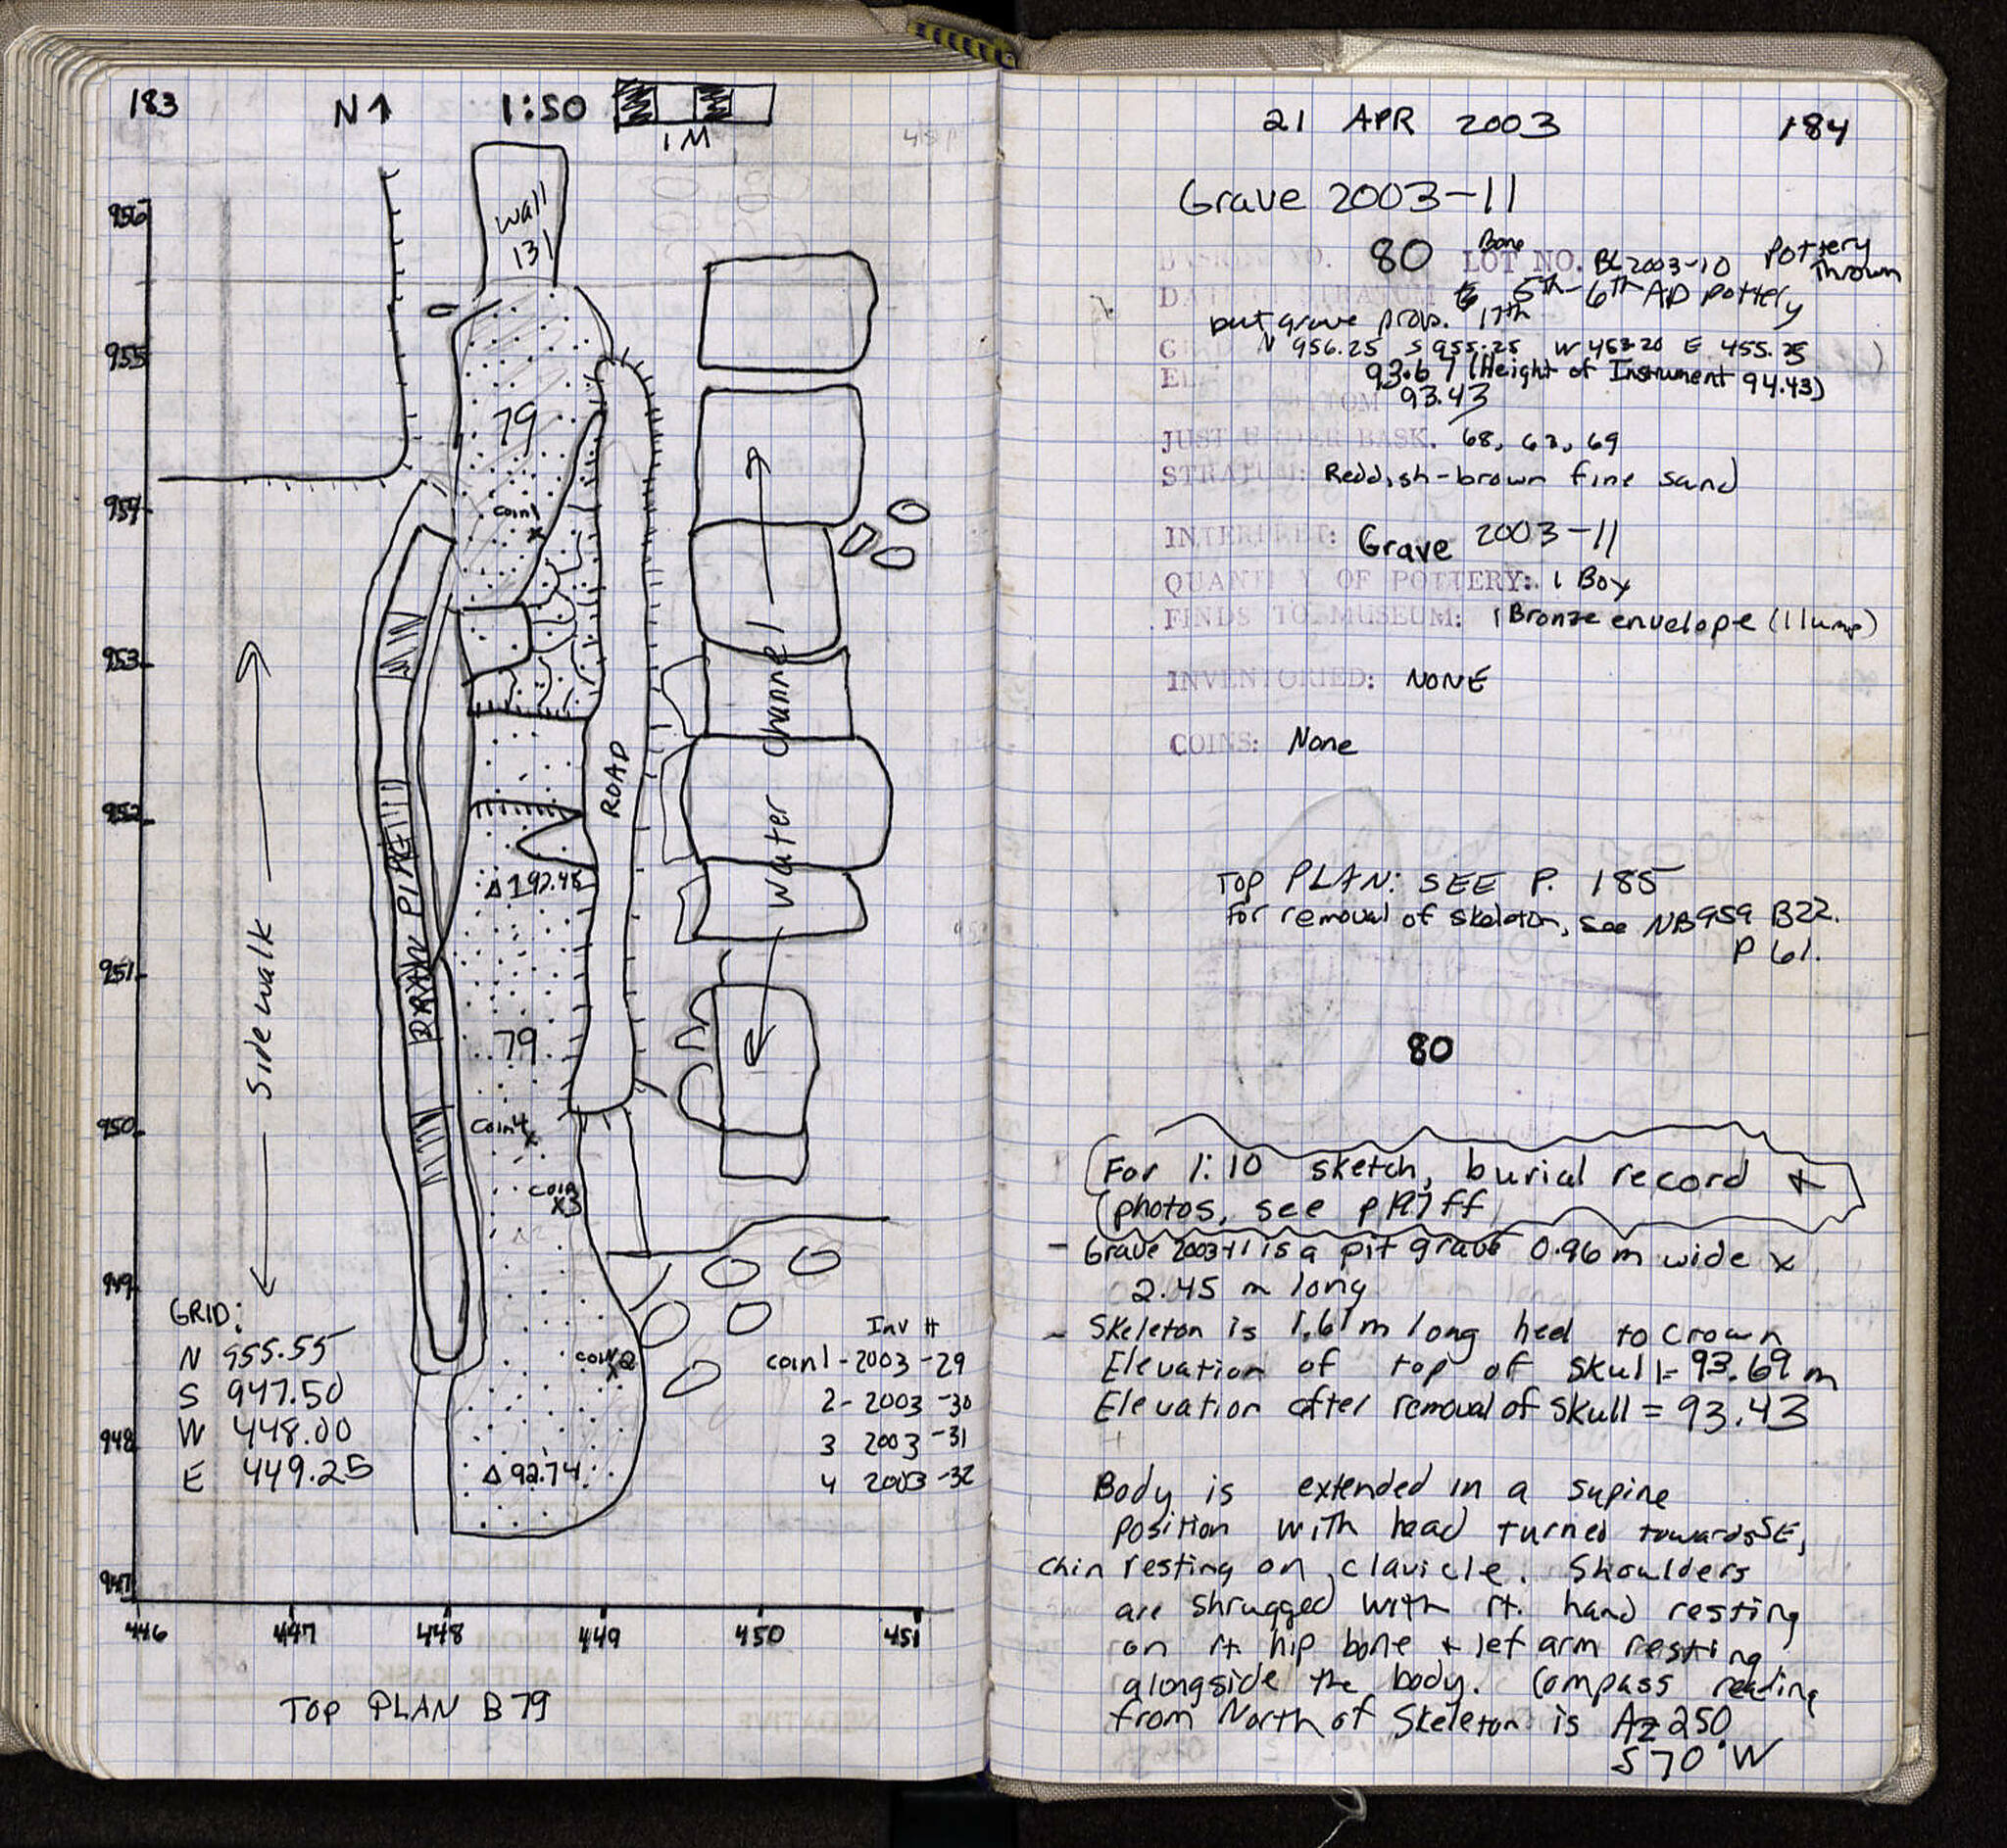 183
N↑
1:50
1M
Wall
131
956
955
954
953
952
951
950
949
948
947
446
447
448
449
450
451
79
coin1
x
Sidewalk
DRAIN PIPE
ROAD
Water Channel
Δ 192.48
79
coin4
x
coin
x3
coin2
x
Δ 92.74
GRID:
N 955.55
S 947.50
W 448.00
E 449.25
Inv #
coin1-2003-29
2-2003-30
3 2003-31
4 2003-32
TOP PLAN B79
21 APR 2003
184
Grave 2003-11
80 Bone LOT NO. BL2003-10 Pottery thrown
5th-6th AD pottery
but grave prob. 17th
N 956.25 S 955.25 W 453.20 E 455.25
93.67 (Height of Instrument 94.43)
93.43
JUST UNDER BASK. 68, 63, 69
STRATUM: Reddish-brown fine sand
INTERPRET: Grave 2003-11
QUANTITY OF POTTERY: 1 Box
FINDS TO MUSEUM: 1 Bronze envelope (1 lump)
INVENTORIED: NONE
COINS: None
TOP PLAN: SEE P. 185
For removal of skeleton, see NB959 B22.
P 61.
80
For 1:10 sketch, burial record +
photos, see ff
- Grave 2003-11 is a pit grave 0.96 m wide x
2.45 m long
- Skeleton is 1.61 m long heel to crown
Elevation of top of skull = 93.69 m
Elevation after removal of skull = 93.43
Body is extended in a supine
position with head turned towards SE,
chin resting on clavicle. Shoulders
are shrugged with rt. hand resting
on rt. hip bone + left arm resting
alongside the body. Compass reading
from North of Skeleton is Az 250
S 70° W